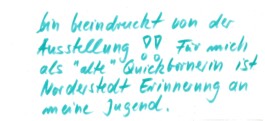 bin beeindruckt von der
Ausstellung !! Für mich
als "alte" Quickbornerin ist
Norderstedt Erinnerung an
meine Jugend.